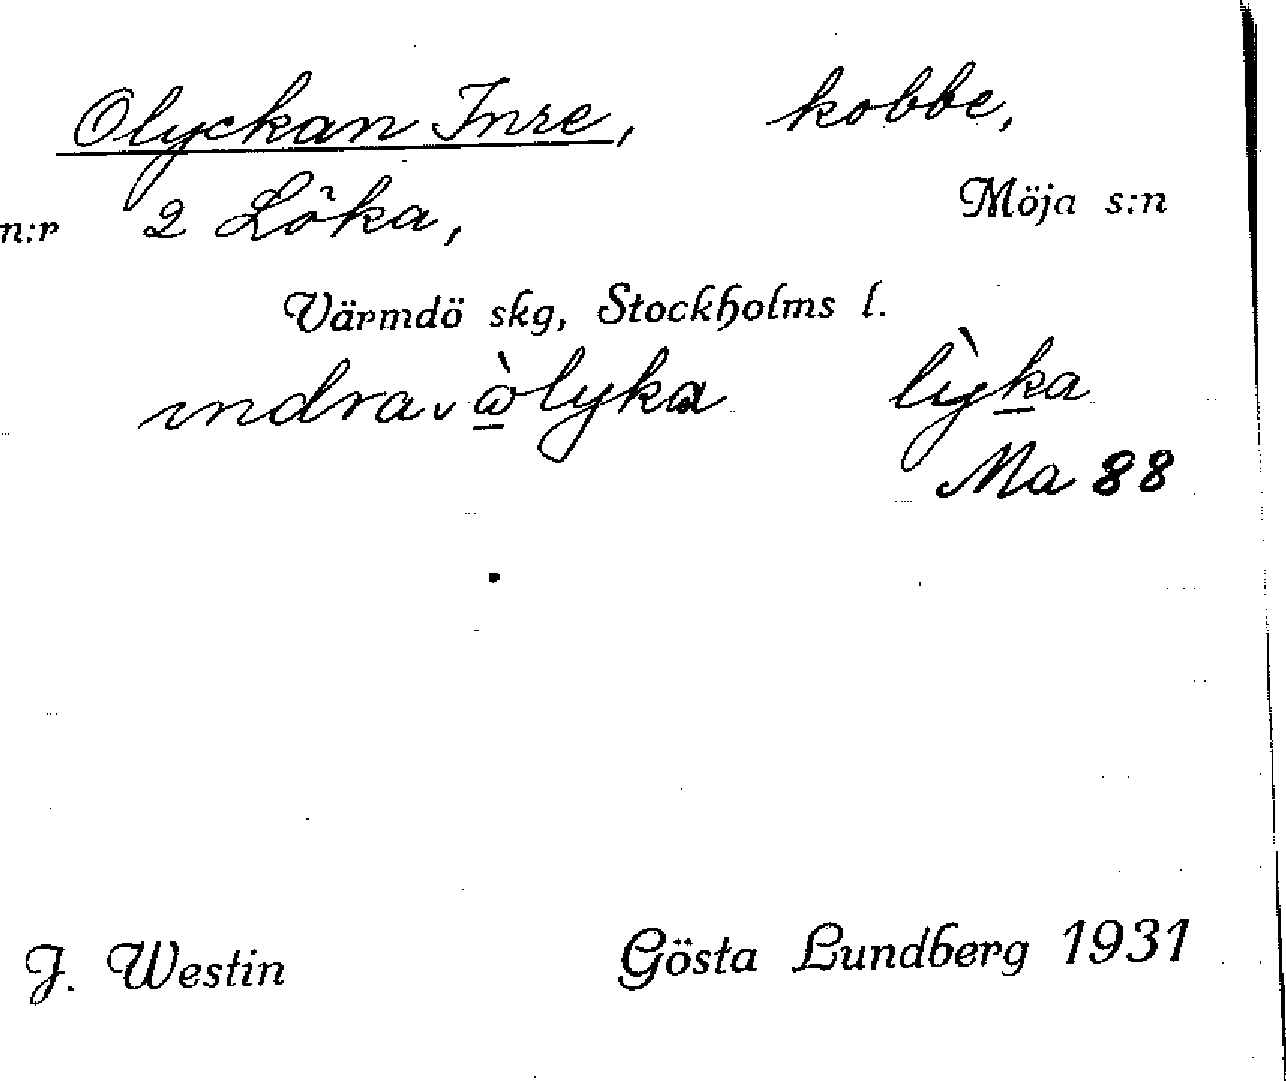 Olyckan Inre, kobbe,
n:r 2 Löka, Möja s:n
Värmdö skg, Stockholms l.
indra v ὼlyka lỳka
Ma 88
J. Westin Gösta Lundberg 1931